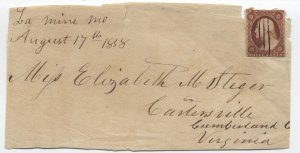 La mine Mo
August 17th 1858
Miss Elizabeth M Steger
Cartersville
Cumberland C
Virginia